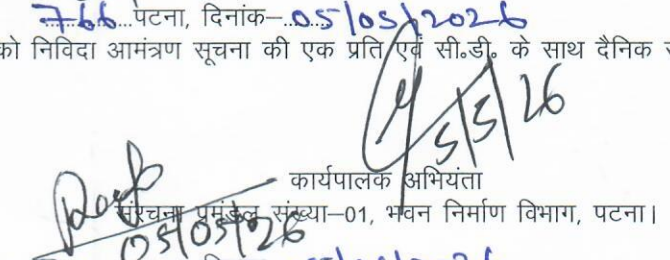 766 पटना, दिनांक–05/05/2026
को निविदा आमंत्रण सूचना की एक प्रति एवं सी०डी० के साथ दैनिक
5/5/26
कार्यपालक अभियंता
संरचना प्रमंडल संख्या–01, भवन निर्माण विभाग, पटना।
05/05/26